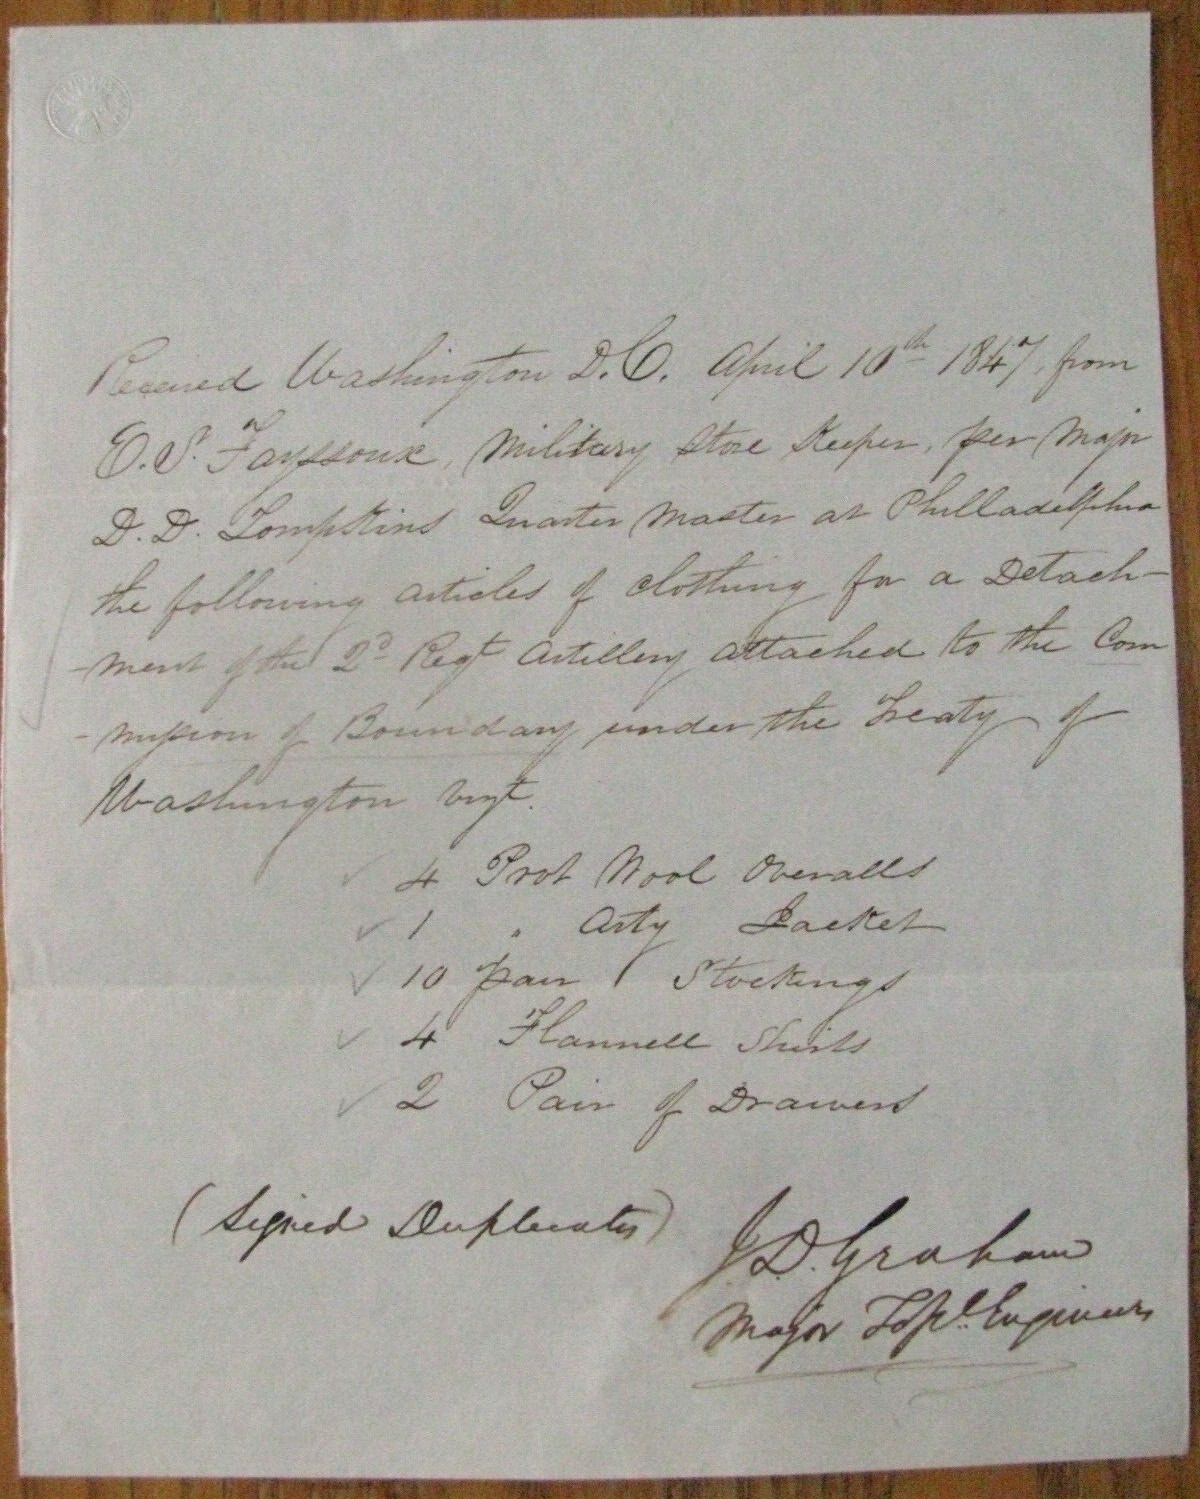 Received Washington D.C. April 10th 1847, from
E. S. Fayssoux, Military Store Keeper, per Major
D. D. Tompkins Quarter Master at Philladelphia
the following articles of clothing for a Detach-
-ment of the 2d Regt Artillery attached to the Com
-mission of Boundary under the Treaty of
Washington vizt.
4 Prot Wool Overalls
1 " Arty Jacket
10 pair Stockings
4 Flannell Shirts
2 Pair of Drawers
(Signed Duplicates)
J. D. Graham
Major Topl. Engineers